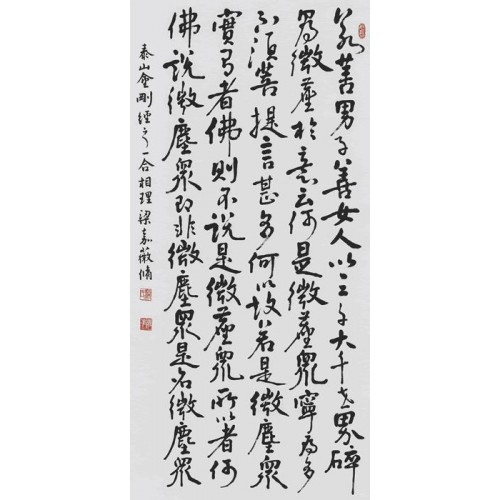 若善男子善女人以三千大千世界碎
為微塵於意云何是微塵眾寧為多
不須菩提言甚多何以故若是微塵眾
實有者佛則不說是微塵眾所以者何
佛說微塵眾即非微塵眾是名微塵眾
泰山金剛經之一合相理梁嘉薇